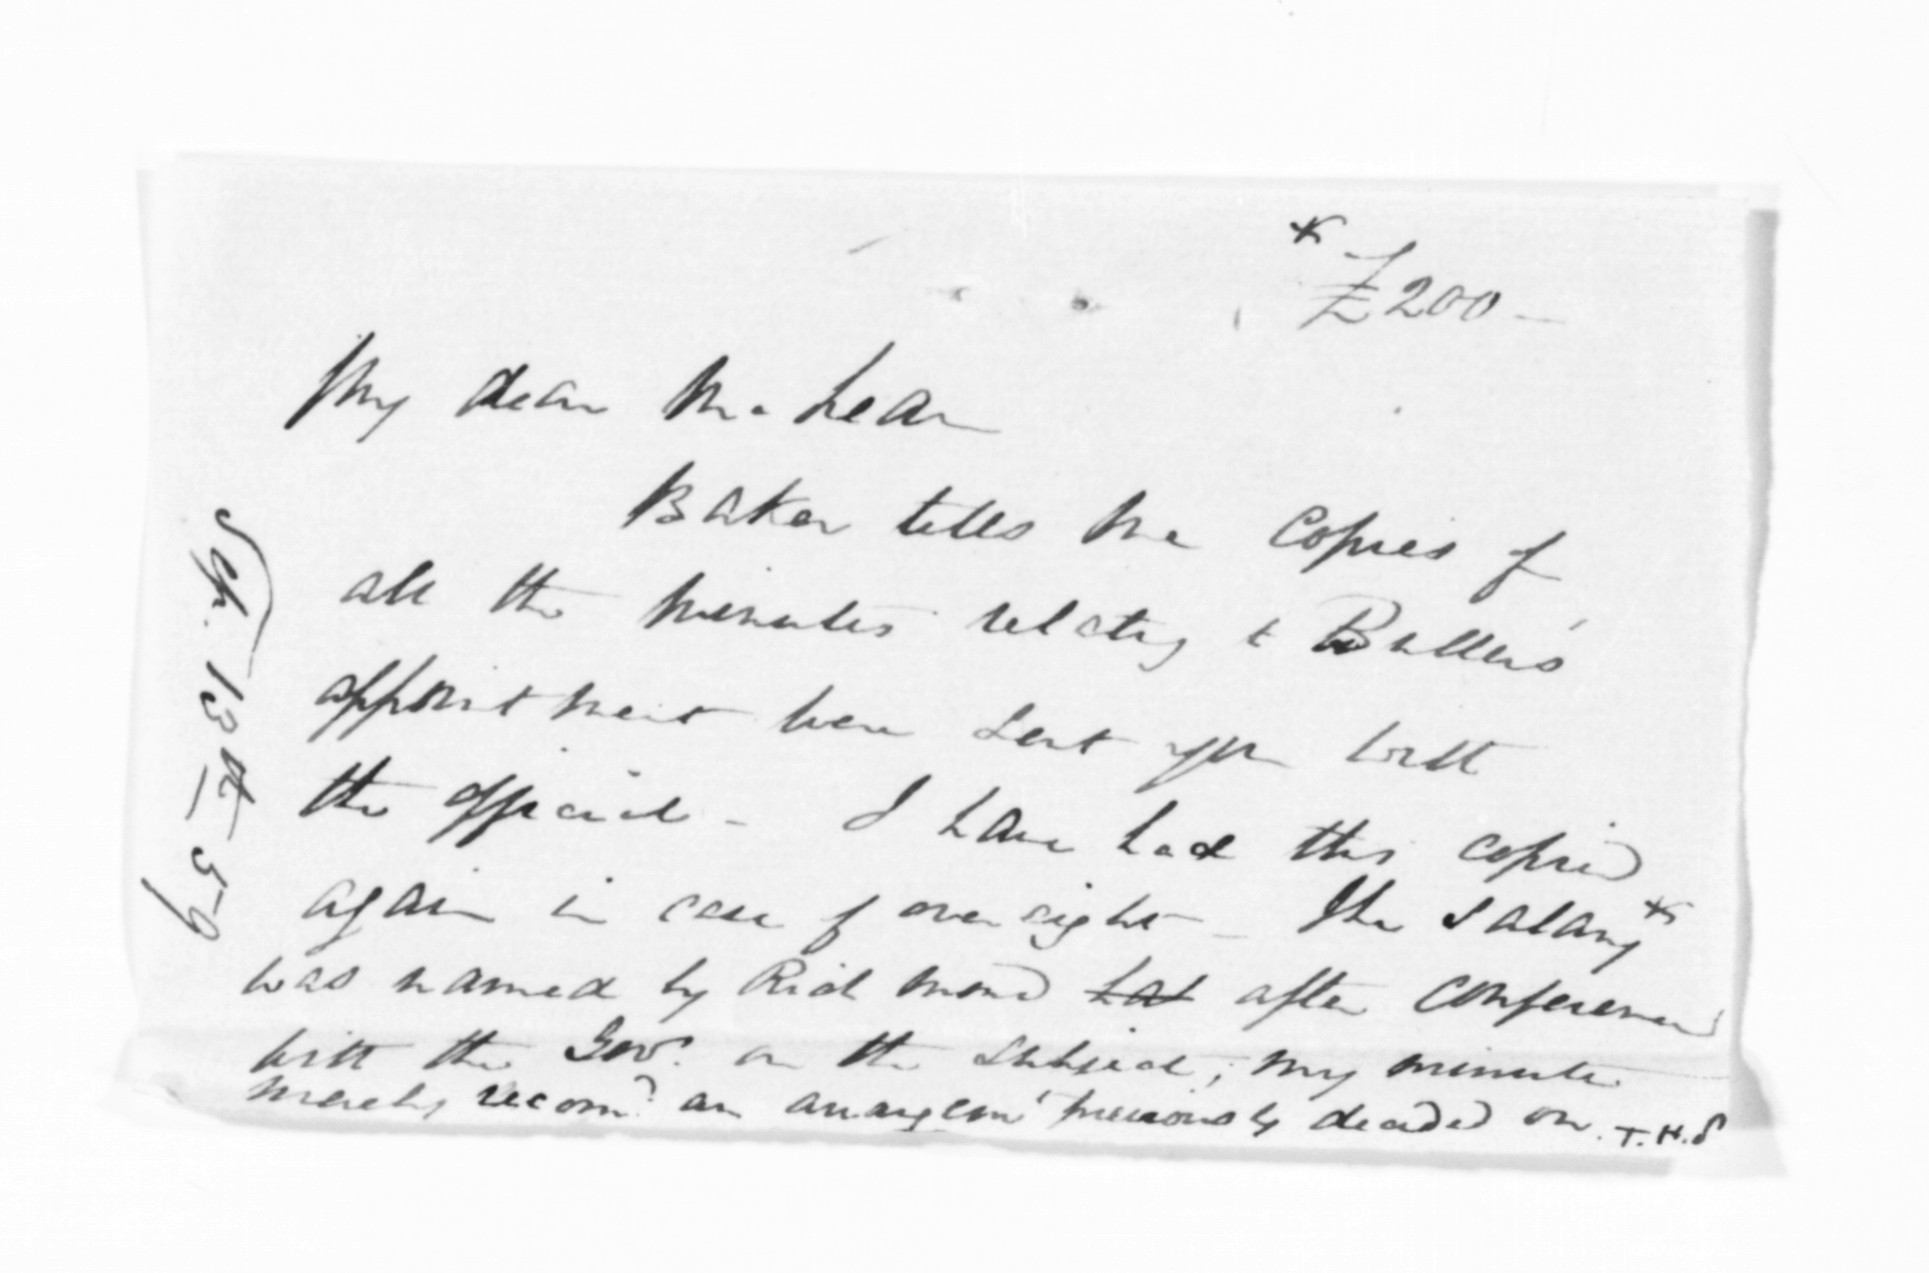 * £200 –
My dear McLean
Baker tells me copies of
all the minutes relating to Buller's
appointment were sent you with
the official – I have had this copied
again in case of oversight – The salary*
was named by Richmond hat after conference
with the Govr. on the subject; my minute
merely recomd. an arrangemt previously decided on. T.H.S
13th 59